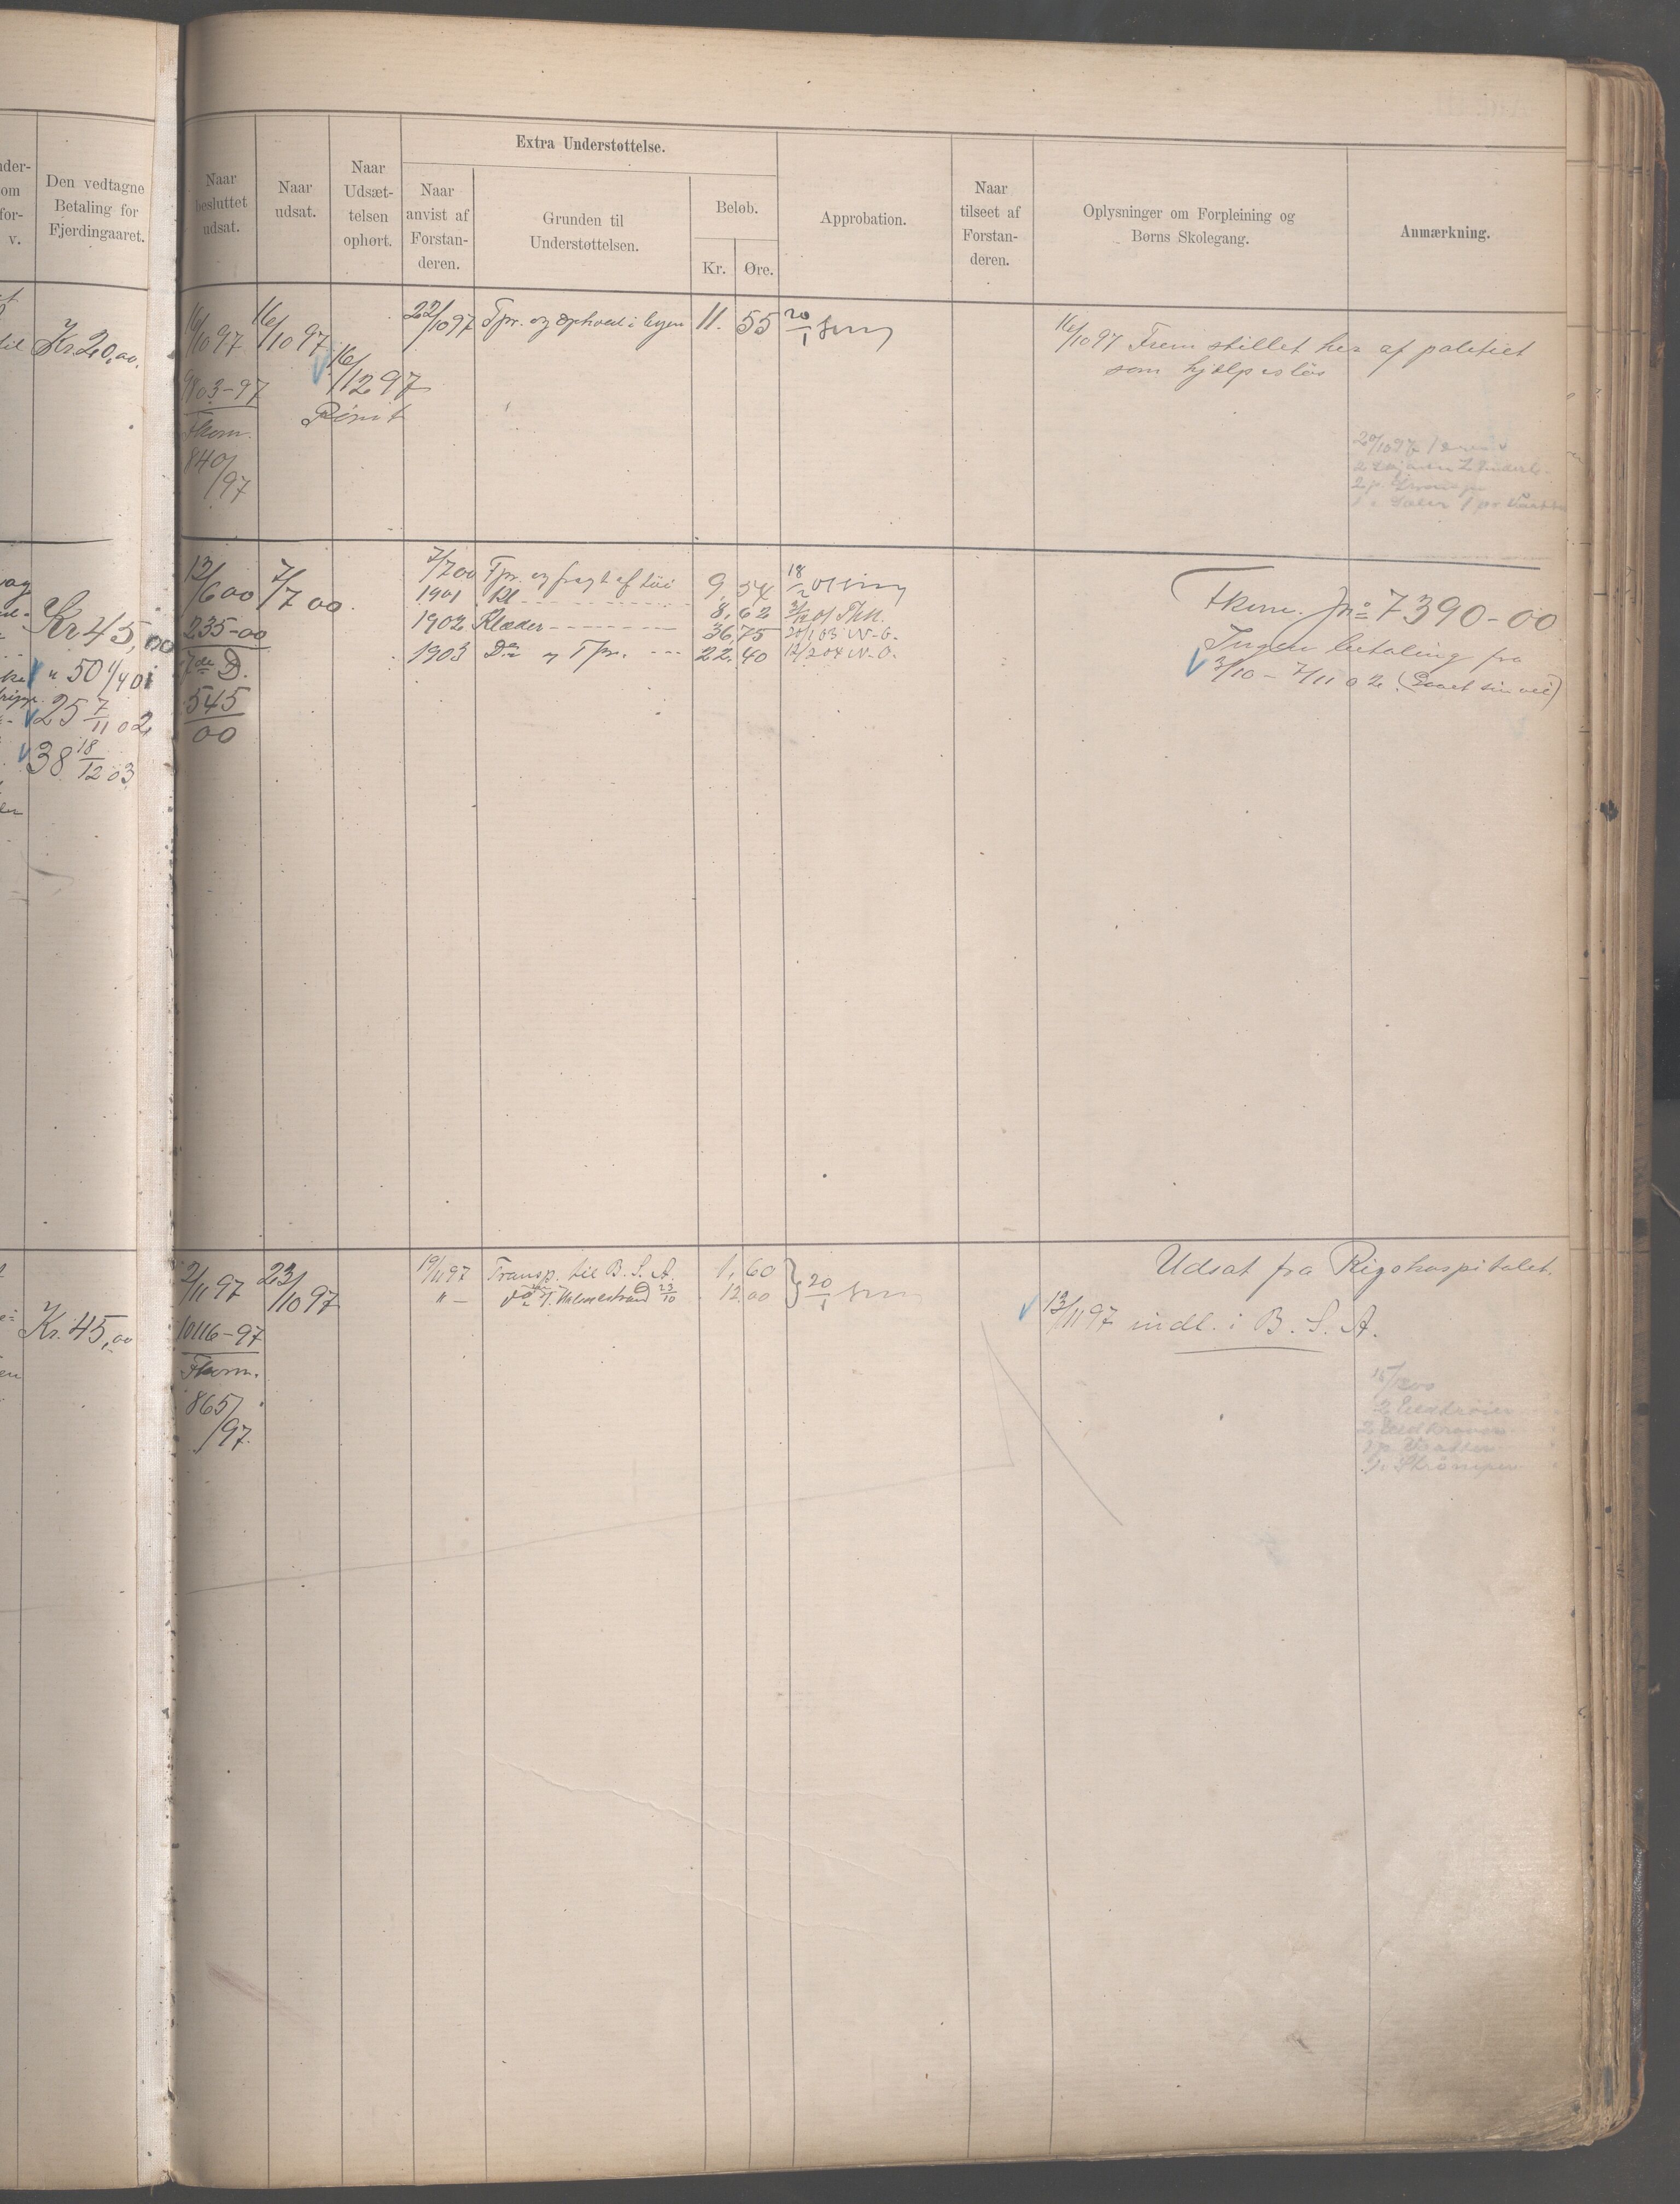 Den vedtagne
Betaling for
Fjerdingaaret.
Naar
besluttet
udsat.
Naar
udsat.
Naar
Udsæt-
telsen
ophørt.
Extra Understøttelse.
Naar
anvist af
Forstan-
deren.
Grunden til
Understøttelsen.
Beløb.
Kr.
Øre.
Approbation.
Naar
tilseet af
Forstan-
deren.
Oplysninger om Forpleining og
Børns Skolegang.
Anmærkning.
Kr. 20,00.
16/10 97
9803-97
Fkom.
840/97
16/10 97
16/12 97
Rømt
22/10 97
Tpr. og ophold i byen
11. 55
20/1
16/10 97 Fremstillet her af politiet
som hjælpesløs
20/10 97
Kr 45,00
" 50 1/4 01
25 7/11 02
38 18/12 03
13/6 00
235-00
7de D.
545/00
7/7 00.
7/7 00 Tpr. og fragt af tøi 9,54
1901 8,62
1902 Klæder 36,75
1903 Do og Tpr. 22,40
Fkom. Jno 7390-00
Ingen betaling fra
3/10 - 7/11 02. (Gaaet sin vei)
Kr. 45,00
2/11 97
10116-97
Fkom.
865/97.
23/10 97
19/11 97 Transp. til B. S. A. 1,60
" — Do T. Holmestrand 23/10 12.00
20/1
Udsat fra Rigshospitalet.
13/11 97 indl. i B. S. A.